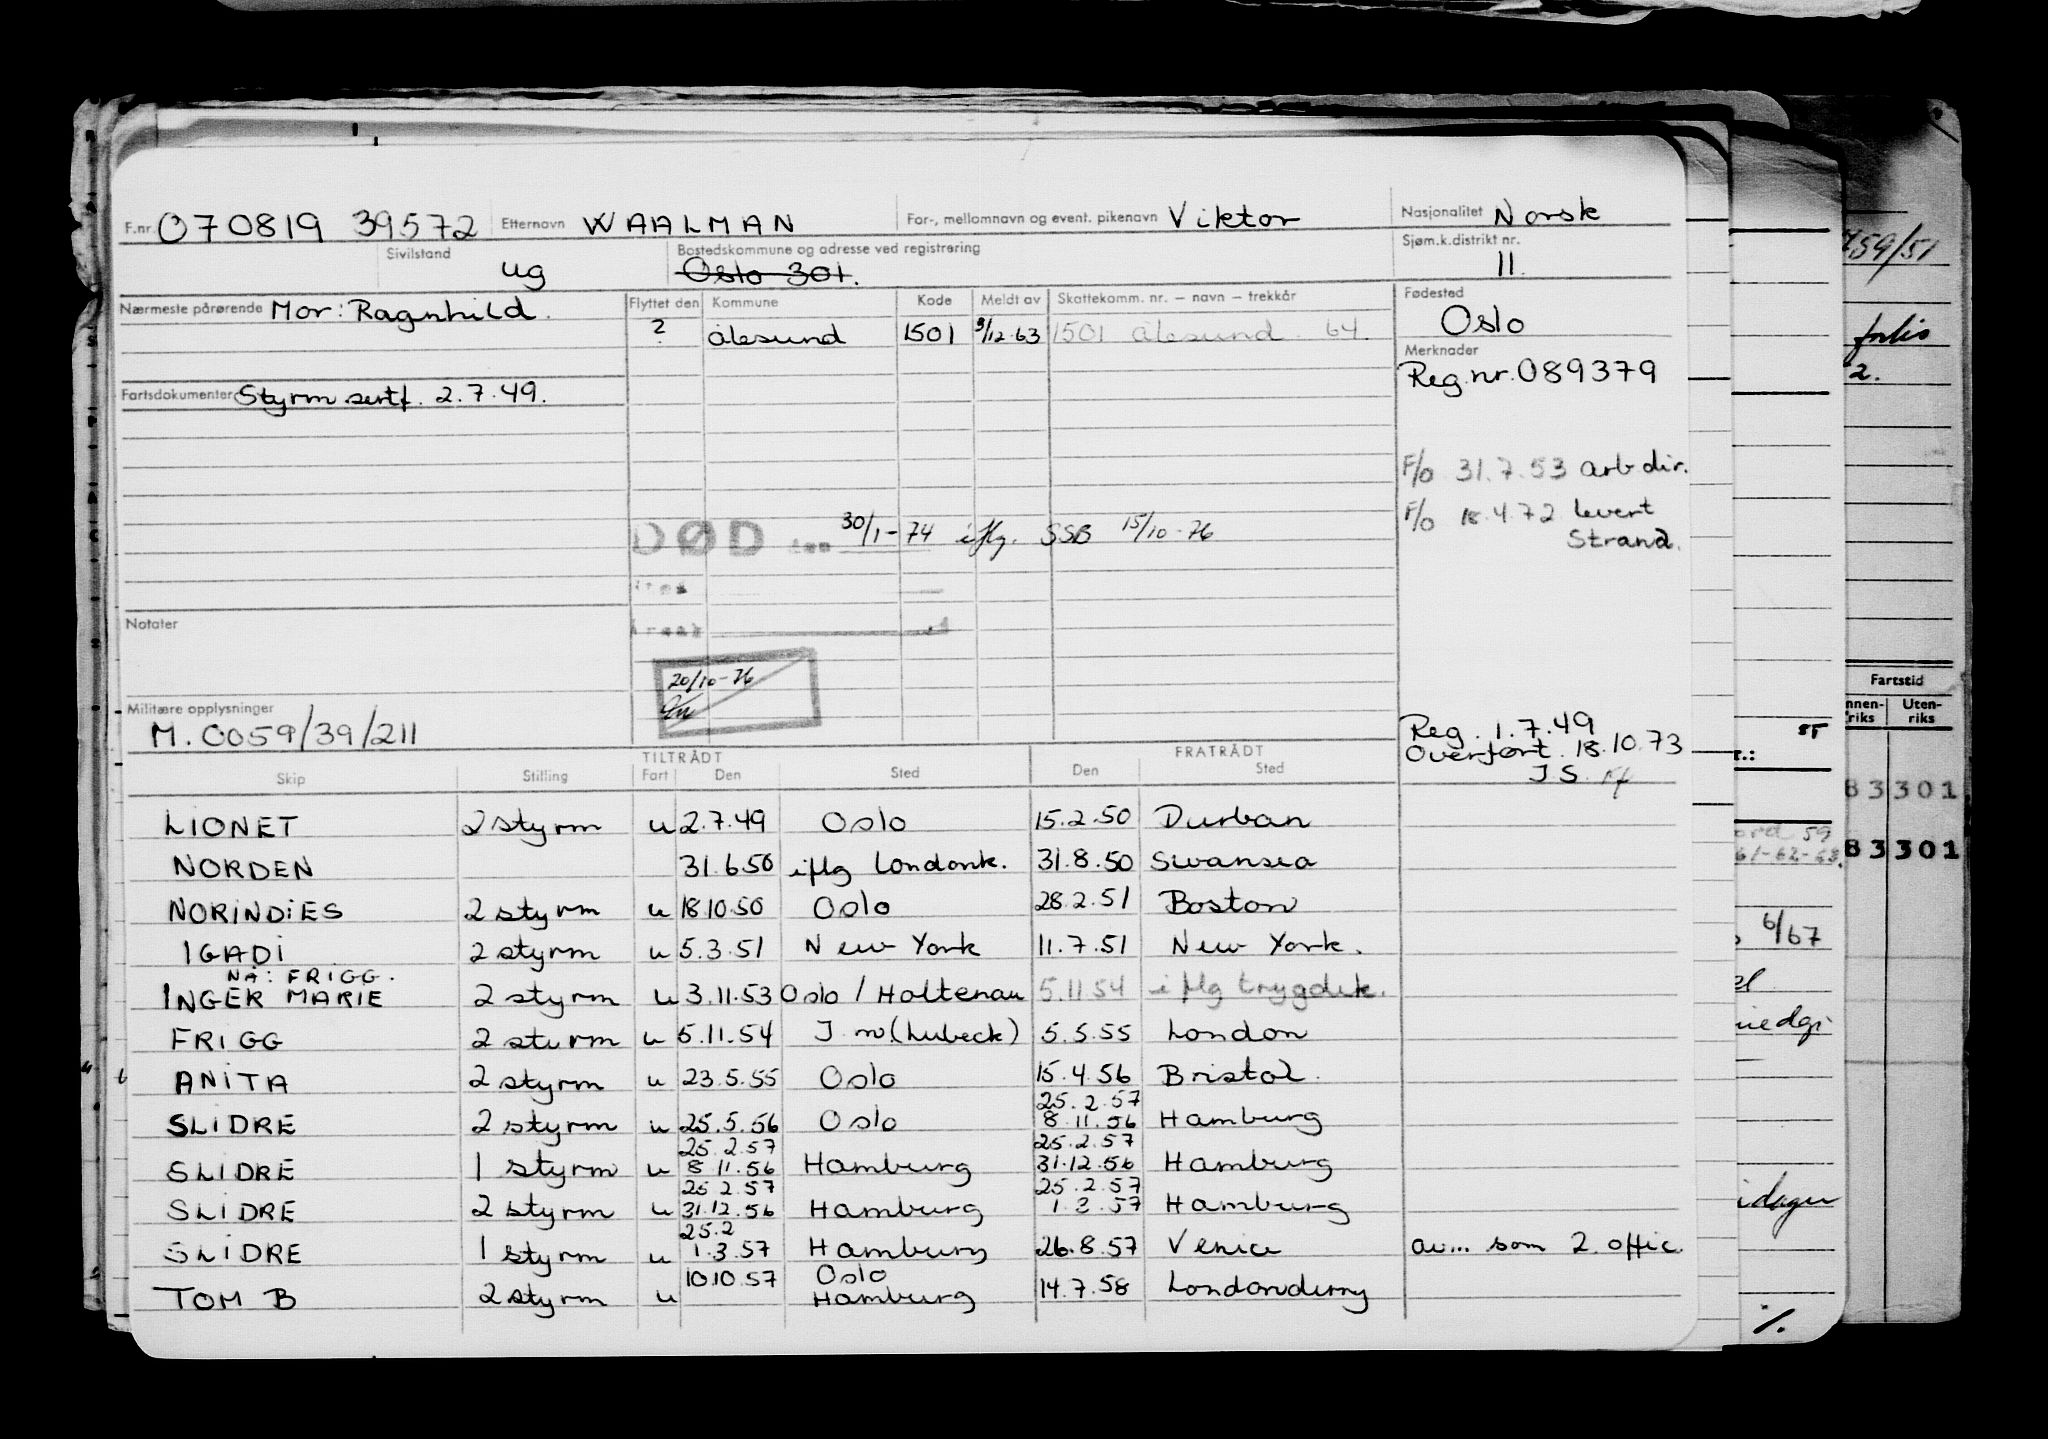 F.nr. 070819 39572 Etternavn WAALMAN For-, mellomnavn og event. pikenavn Viktor Nasjonalitet Norsk
Sivilstand ug Bostedskommune og adresse ved registrering Oslo 301. Sjøm.k.distrikt nr. 11
Nærmeste pårørende Mor: Ragnhild. Flyttet den Kommune Kode Meldt av Skattekomm. nr. – navn – trekkår Fødested
? Ålesund 1501 3/12.63 1501 Ålesund 64. Oslo
Merknader
Fartsdokumenter Styrm sertf. 2.7.49. Reg.nr. 089379
F/o 31.7.53 arb dir.
F/o 18.4.72 levert
Strand.
DØD den 30/1-74 iflg. SSB 15/10-76
Notater
20/10-76
Militære opplysninger
M.0059/39/211
Reg. 1.7.49
Overført. 18.10.73
J S.
TILTRÅDT FRATRÅDT
Skip Stilling Fart Den Sted Den Sted
LIONET 2 styrm u 2.7.49 Oslo 15.2.50 Durban
NORDEN 31.6.50 iflg Londonk. 31.8.50 Swansea
NORINDIES 2 styrm u 18.10.50 Oslo 28.2.51 Boston
IGADI 2 styrm u 5.3.51 New York 11.7.51 New York.
NÅ: FRIGG.
INGER MARIE 2 styrm u 3.11.53 Oslo / Holtenau 5.11.54 iflg trygdek.
FRIGG 2 sturm u 5.11.54 (Lubeck) 5.5.55 London
ANITA 2 styrm u 23.5.55 Oslo 15.4.56 Bristol.
25.2.57
SLIDRE 2 styrm u 25.5.56 Oslo 8.11.56 Hamburg
25.2.57 25.2.57
SLIDRE 1 styrm u 8.11.56 Hamburg 31.12.56 Hamburg
25.2.57 25.2.57
SLIDRE 2 styrm u 31.12.56 Hamburg 1.3.57 Hamburg
25.2
SLIDRE 1 styrm u 1.3.57 Hamburg 26.8.57 Venice av... som 2. offic.
10.10.57 Oslo
TOM B 2 styrm u Hamburg 14.7.58 Londonderry
59/51
folio
2.
Fartstid
Innen-riks Uten-riks
83301
59
61-62-63.
83301
6/67
%.